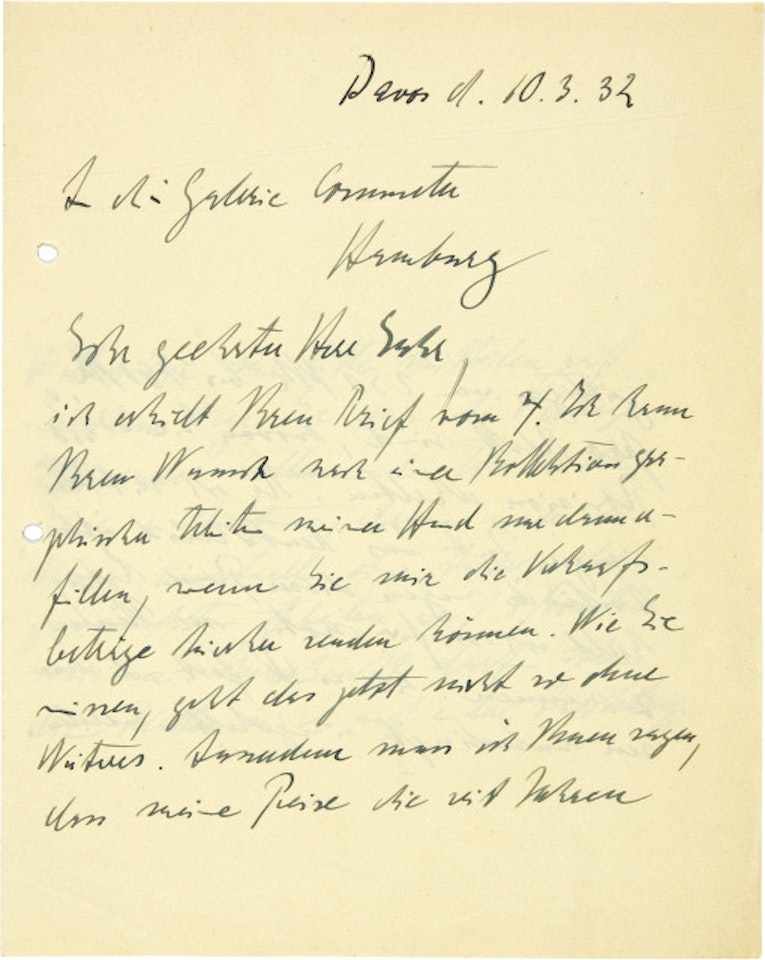 Davos d. 10.3.32
An die Galerie Commeter
Hamburg
Sehr geehrter Herr
ich erhielt Ihren Brief vom 4. Ich kann
Ihren Wunsch nach einer Kollektion gra-
phischer Arbeiten meiner Hand nur dann er-
füllen, wenn Sie mir die Verkaufs-
beträge hierher senden können. Wie Sie
wissen, geht das jetzt nicht so ohne
Weiteres. Ausserdem muss ich Ihnen sagen,
dass meine Preise die seit Jahren